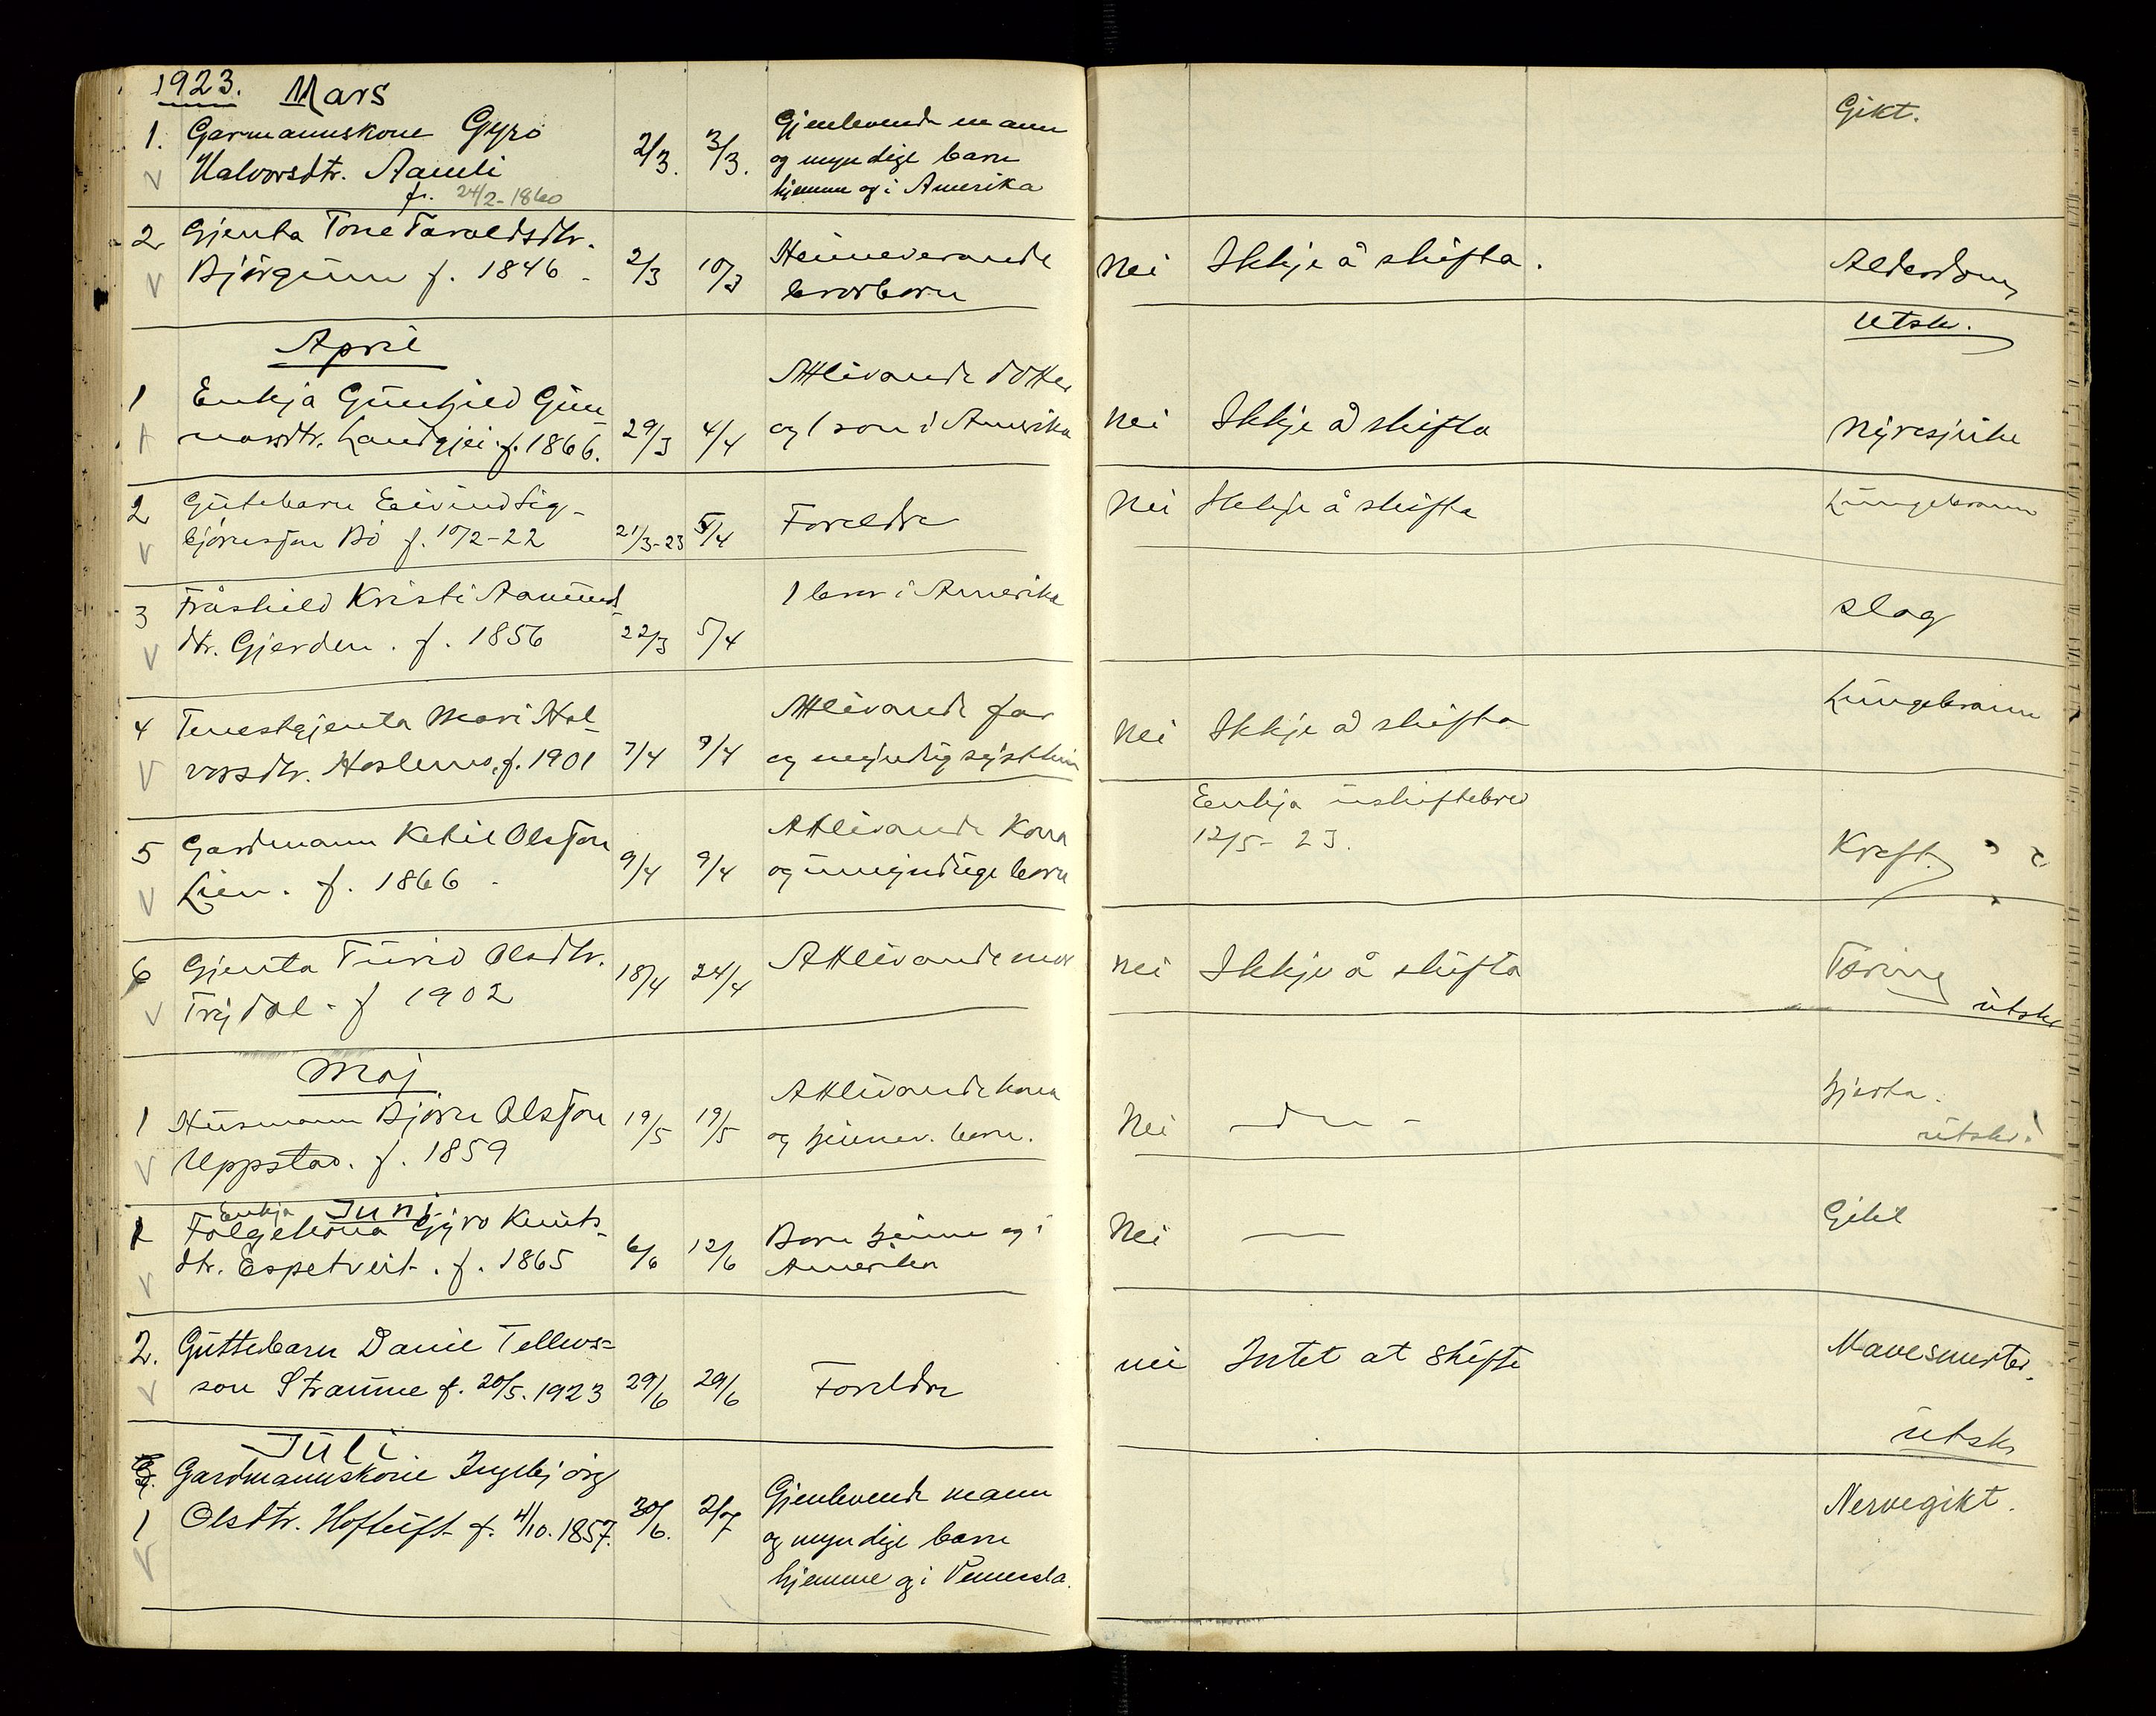 1923. Mars
1. Garmannskone Gyro
Halvorsdtr. Aamli
f. 24/2-1860
2/3. 3/3.
Gjenlevende mann
og myndige barn
hjemme og i Amerika
Gikt.
2 Gjenta Tone Taroldsdtr.
Bjørgum f. 1846 -
2/3 10/3
Heimeverande
brorborn
Nei Ikkje å skifta.
Alderdom
Utskr.
April
1 Enkja Gunhild Gun-
narsdtr. Landgjei. f. 1866.
29/3 4/4
Attlivande dotter
og 1 son i Amerika
Nei Ikkje å skifta
Nyresjuke
2 Gutebarn Eivind Sig-
bjørnsson Bö f. 10/2-22
21/3-23 5/4
Foreldre
Nei Ikkje å skifta
Lungebrann
3 Fråskild Kristi Aamund-
dtr. Gjerden. f. 1856
22/3 5/4
1 bror i Amerika
slag
4 Tenestgjenta Mari Hal-
vorsdtr. Haslemo, f. 1901
7/4 7/4
Attlivande far
og myndig systkin
Nei Ikkje å skifta
Lungebrann
5 Gardmann Ketil Olsson
Lien. f. 1866 -
9/4 9/4
Attlivande Kona
og umyndige born
Enkja uskiftebrev
12/5-23.
Kreft.
6 Gjenta Turid Olsdtr.
Trydal - f 1902
18/4 24/4
Attlivande mor
Nei Ikkje å skifta
Tæring
utskr
Maj
1 Husmann Bjørn Olsson
Uppstad. f. 1859
19/5 19/5
Attlivande kona
og heimev. born.
Nei - d -
hjerta.
utskr.
Juni
Enkja
1 Følgekona Gyro Knuts-
dtr. Espetveit. f. 1865
6/6 12/6
Born heime og i
Amerika
Nei —
Gikt
2. Guttebarn Danie Tellevs=
son Straume f. 20/5. 1923
29/6 29/6
Foreldre
nei Intet at skifte
Mavesmerter.
utskr
Juli
1 Gardmannskone Ingebjørg
Olsdtr. Hoftuft f. 4/10. 1857.
30/6. 2/7
Gjenlevende mann
og myndige barn
hjemme og i Vennesla.
Nervegikt.